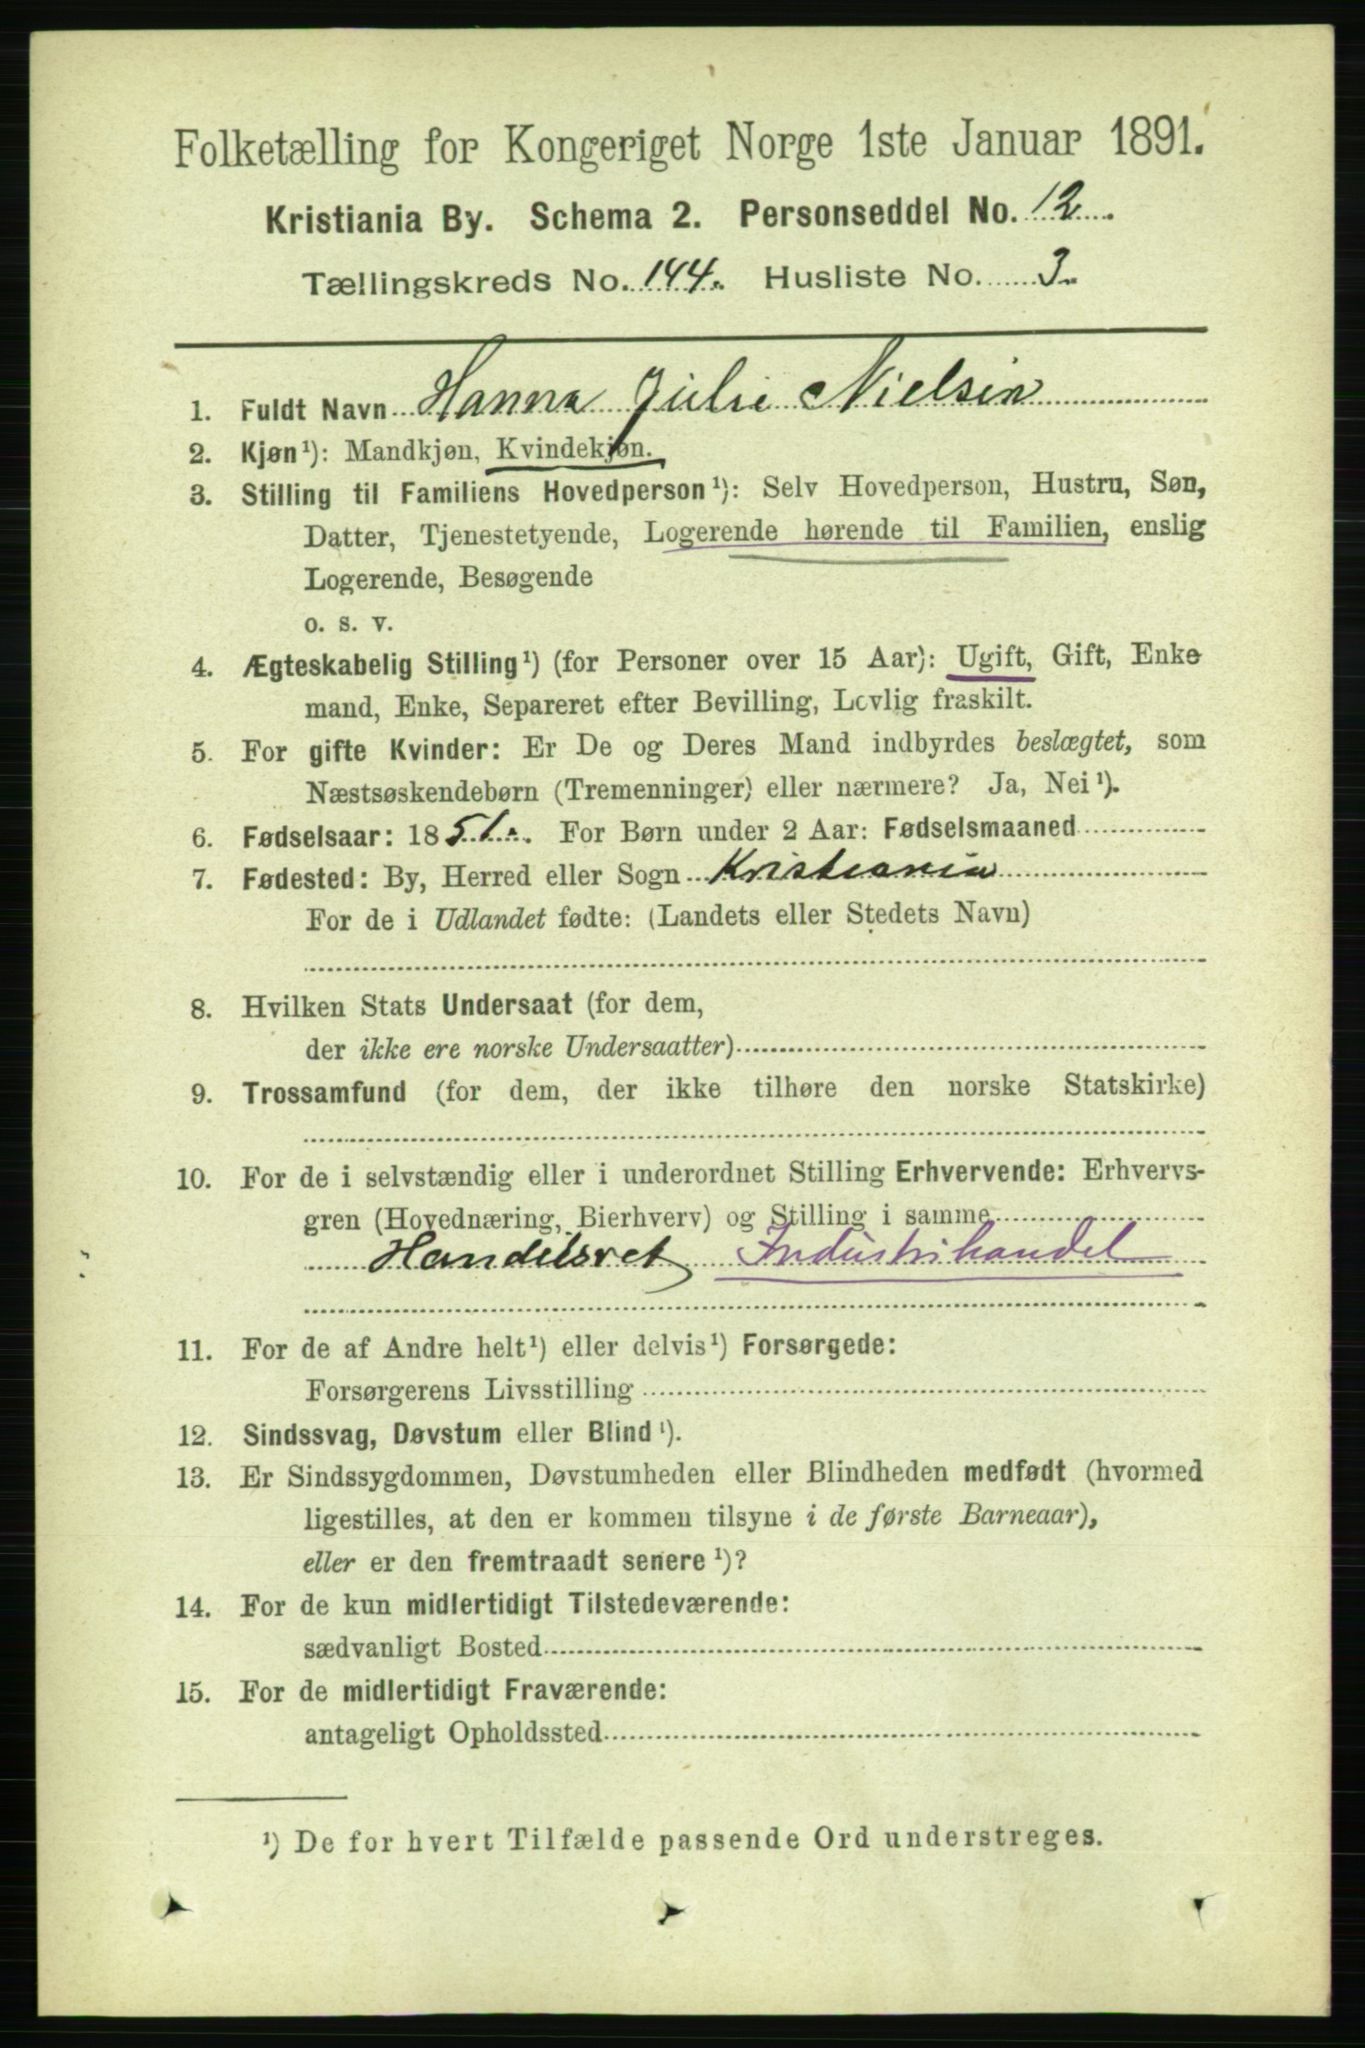 Folketælling for Kongeriget Norge 1ste Januar 1891.
Kristiania By. Schema 2. Personseddel No. 12.
Tællingskreds No. 144. Husliste No. 3.
1. Fuldt Navn Hanna Julie Nielsen
2. Kjøn¹): Mandkjøn, Kvindekjøn.
3. Stilling til Familiens Hovedperson¹): Selv Hovedperson, Hustru, Søn,
Datter, Tjenestetyende, Logerende hørende til Familien, enslig
Logerende, Besøgende
o. s. v.
4. Ægteskabelig Stilling¹) (for Personer over 15 Aar): Ugift, Gift, Enke
mand, Enke, Separeret efter Bevilling, Lovlig fraskilt.
5. For gifte Kvinder: Er De og Deres Mand indbyrdes beslægtet, som
Næstsøskendebørn (Tremenninger) eller nærmere? Ja, Nei¹).
6. Fødselsaar: 1851. For Børn under 2 Aar: Fødselsmaaned
7. Fødested: By, Herred eller Sogn Kristiania
For de i Udlandet fødte: (Landets eller Stedets Navn)
8. Hvilken Stats Undersaat (for dem,
der ikke ere norske Undersaatter)
9. Trossamfund (for dem, der ikke tilhøre den norske Statskirke)
10. For de i selvstændig eller i underordnet Stilling Erhvervende: Erhvervs-
gren (Hovednæring, Bierhverv) og Stilling i samme
Handelsret Industrihandel
11. For de af Andre helt¹) eller delvis¹) Forsørgede:
Forsørgerens Livsstilling
12. Sindssvag, Døvstum eller Blind¹).
13. Er Sindssygdommen, Døvstumheden eller Blindheden medfødt (hvormed
ligestilles, at den er kommen tilsyne i de første Barneaar),
eller er den fremtraadt senere¹)?
14. For de kun midlertidigt Tilstedeværende:
sædvanligt Bosted
15. For de midlertidigt Fraværende:
antageligt Opholdssted
¹) De for hvert Tilfælde passende Ord understreges.